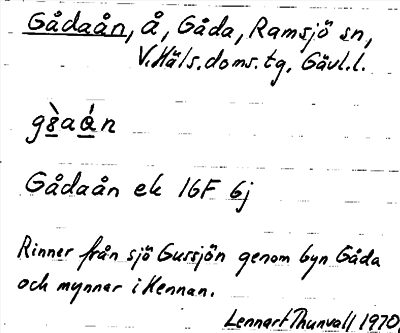 Gådaån, å, Gåda, Ramsjö sn,
V. Häls. doms. tg. Gävl. l.
Gådaån ek 16F 6j
Rinner från sjö Gussjön genom byn Gåda
och mynnar i Hennan.
Lennart Thunvall 1970